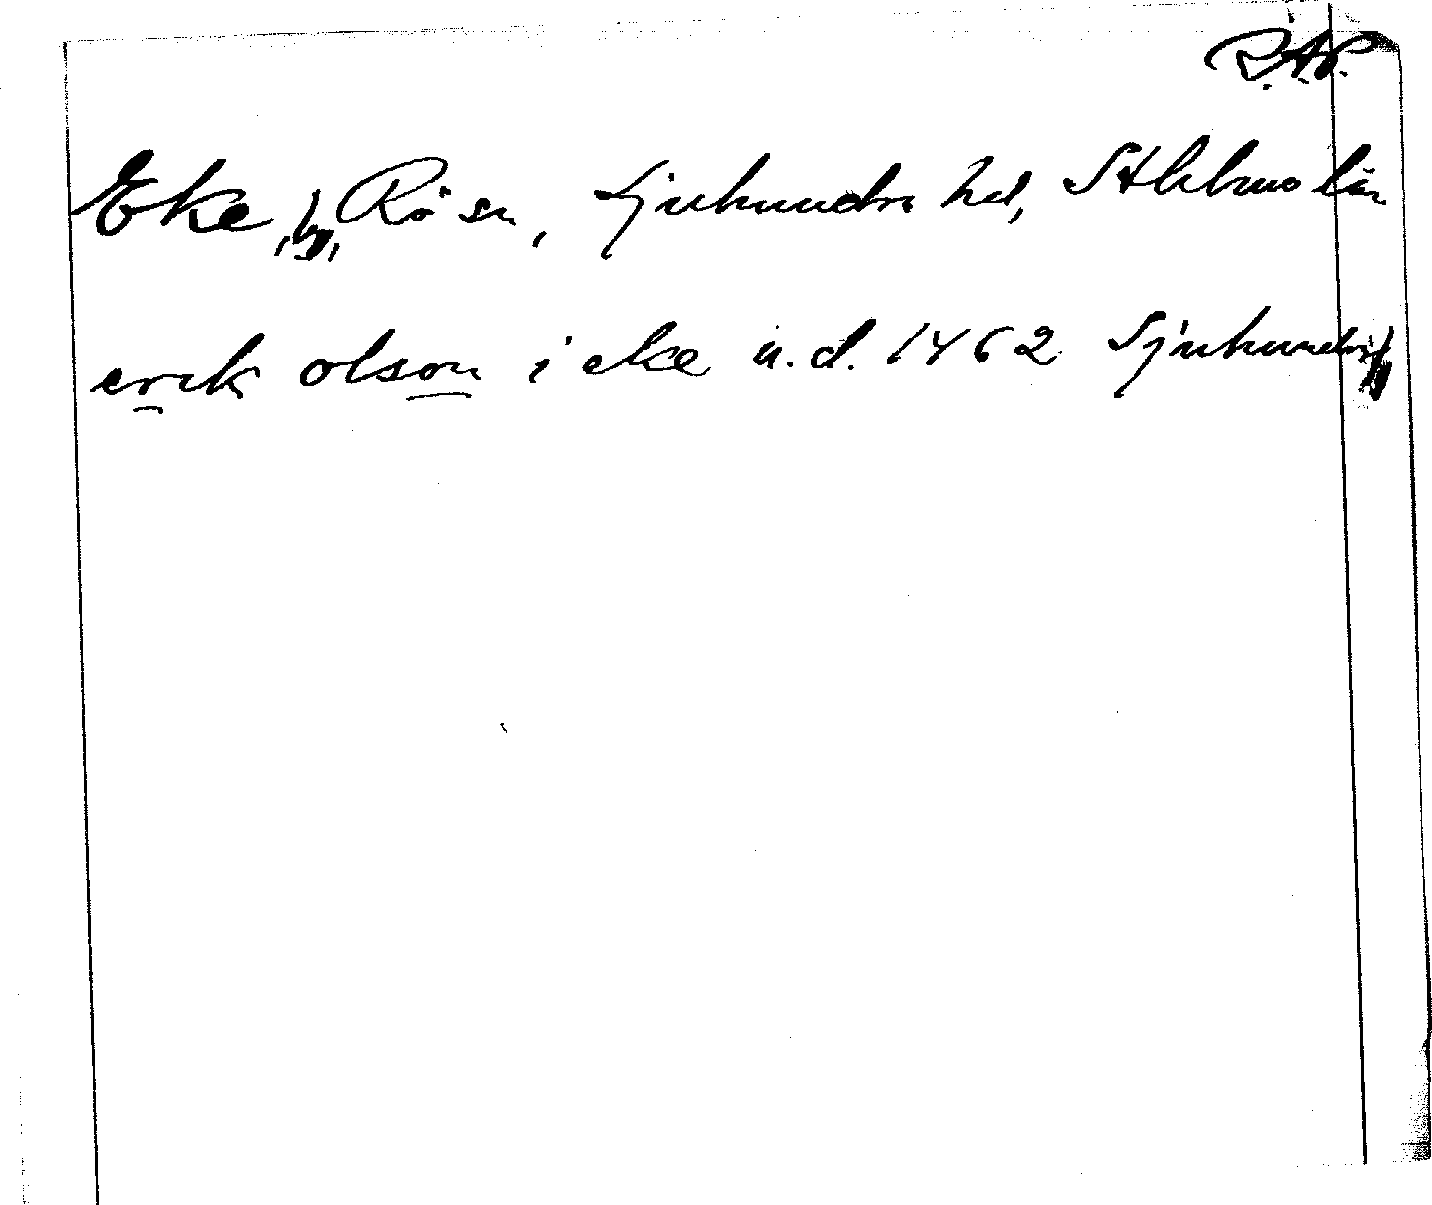 R.A.P.
Eke, by, Rö sn, Sjuhundra hd, Sthlms län
erik olson i eke u.d. 1462 Sjuhundra